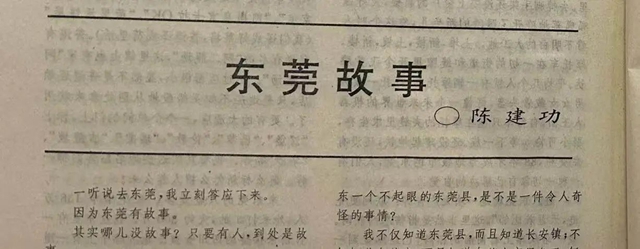 东莞故事
陈建功
一听说去东莞，我立刻答应下来。
因为东莞有故事。
其实哪儿没故事？只要有人，到处是故
东一个不起眼的东莞县，是不是一件令人奇
怪的事情？
我不仅知道东莞县，而且知道长安镇；不